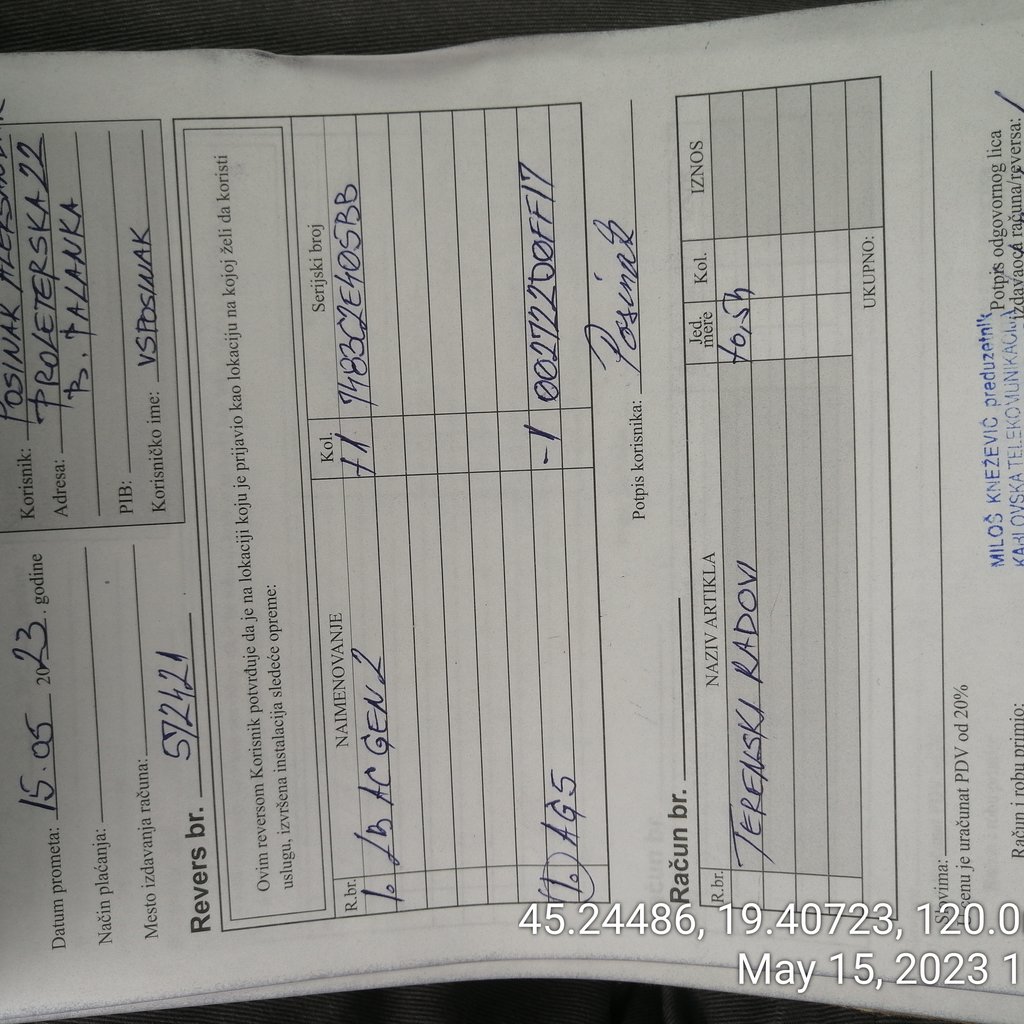 Datum prometa: 15.05 2023. godine
Način plaćanja:
Mesto izdavanja računa:
Korisnik: POSINAK
Adresa: PROLETERSKA 22
B. PALANKA
PIB:
Korisničko ime: VSPOSINAK
Revers br. 572421
Ovim reversom Korisnik potvrđuje da je na lokaciji koju je prijavio kao lokaciju na kojoj želi da koristi
uslugu, izvršena instalacija sledeće opreme:
R.br. NAIMENOVANJE Kol. Serijski broj
1. LB AC GEN 2 +1 7483C2E405BB
1. AG5 -1 002722D0FF17
Potpis korisnika: Posinak
Račun br.
R.br. NAZIV ARTIKLA Jed. mere Kol. IZNOS
TERENSKI RADOVI +0,5h
UKUPNO:
Slovima:
U cenu je uračunat PDV od 20%
Račun i robu primio:
Potpis odgovornog lica
izdavaoca računa/reversa:
MILOŠ KNEŽEVIĆ preduzetnik
KARLOVSKA TELEKOMUNIKACIJA
45.24486, 19.40723, 120.0
May 15, 2023 1